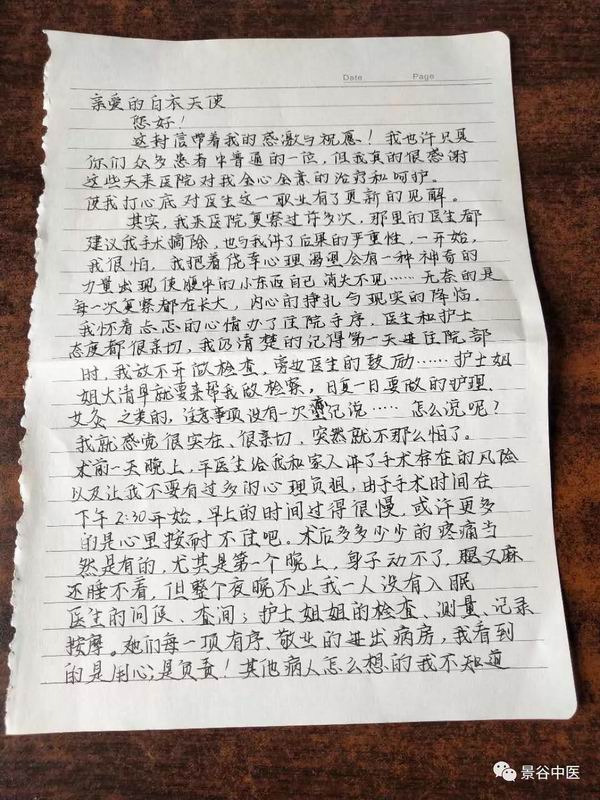 Date    Page
亲爱的白衣天使
您好！
这封信带着我的感激与祝愿！我也许只是
你们众多患者中普通的一位，但我真的很感谢
这些天来医院对我全心全意的治疗和呵护。
使我打心底对医生这一职业有了更新的见解。
其实，我来医院复察过许多次，那里的医生都
建议我手术摘除，也与我讲了后果的严重性，一开始，
我很怕，我抱着侥幸心理渴望会有一种神奇的
力量出现使腹中的小东西自己消失不见……无奈的是
每一次复察都在长大，内心的挣扎与现实的降临。
我怀着忐忑的心情办了住院手序，医生和护士
态度都很亲切，我仍清楚的记得第一天进住院部
时，我放不开做检查，旁边医生的鼓励……护士姐
姐大清早就要来帮我做检察，日复一日要做的护理、
艾灸之类的，注意事项没有一次忘记说……怎么说呢？
我就感觉很实在、很亲切，突然就不那么怕了。
术前一天晚上，医生给我和家人讲了手术存在的风险
以及让我不要有过多的心理负担，由于手术时间在
下午2:30开始，早上的时间过得很慢，或许更多
的是心里按耐不住吧。术后多多少少的疼痛当
然是有的，尤其是第一个晚上，身子动不了，腿又麻
还睡不着，但整个夜晚不止我一人没有入眠
医生的问候、查间；护士姐姐的检查、测量、记录
按摩。她们每一项有序、敬业的进出病房，我看到
的是用心；是负责！其他病人怎么想的我不知道
景谷中医